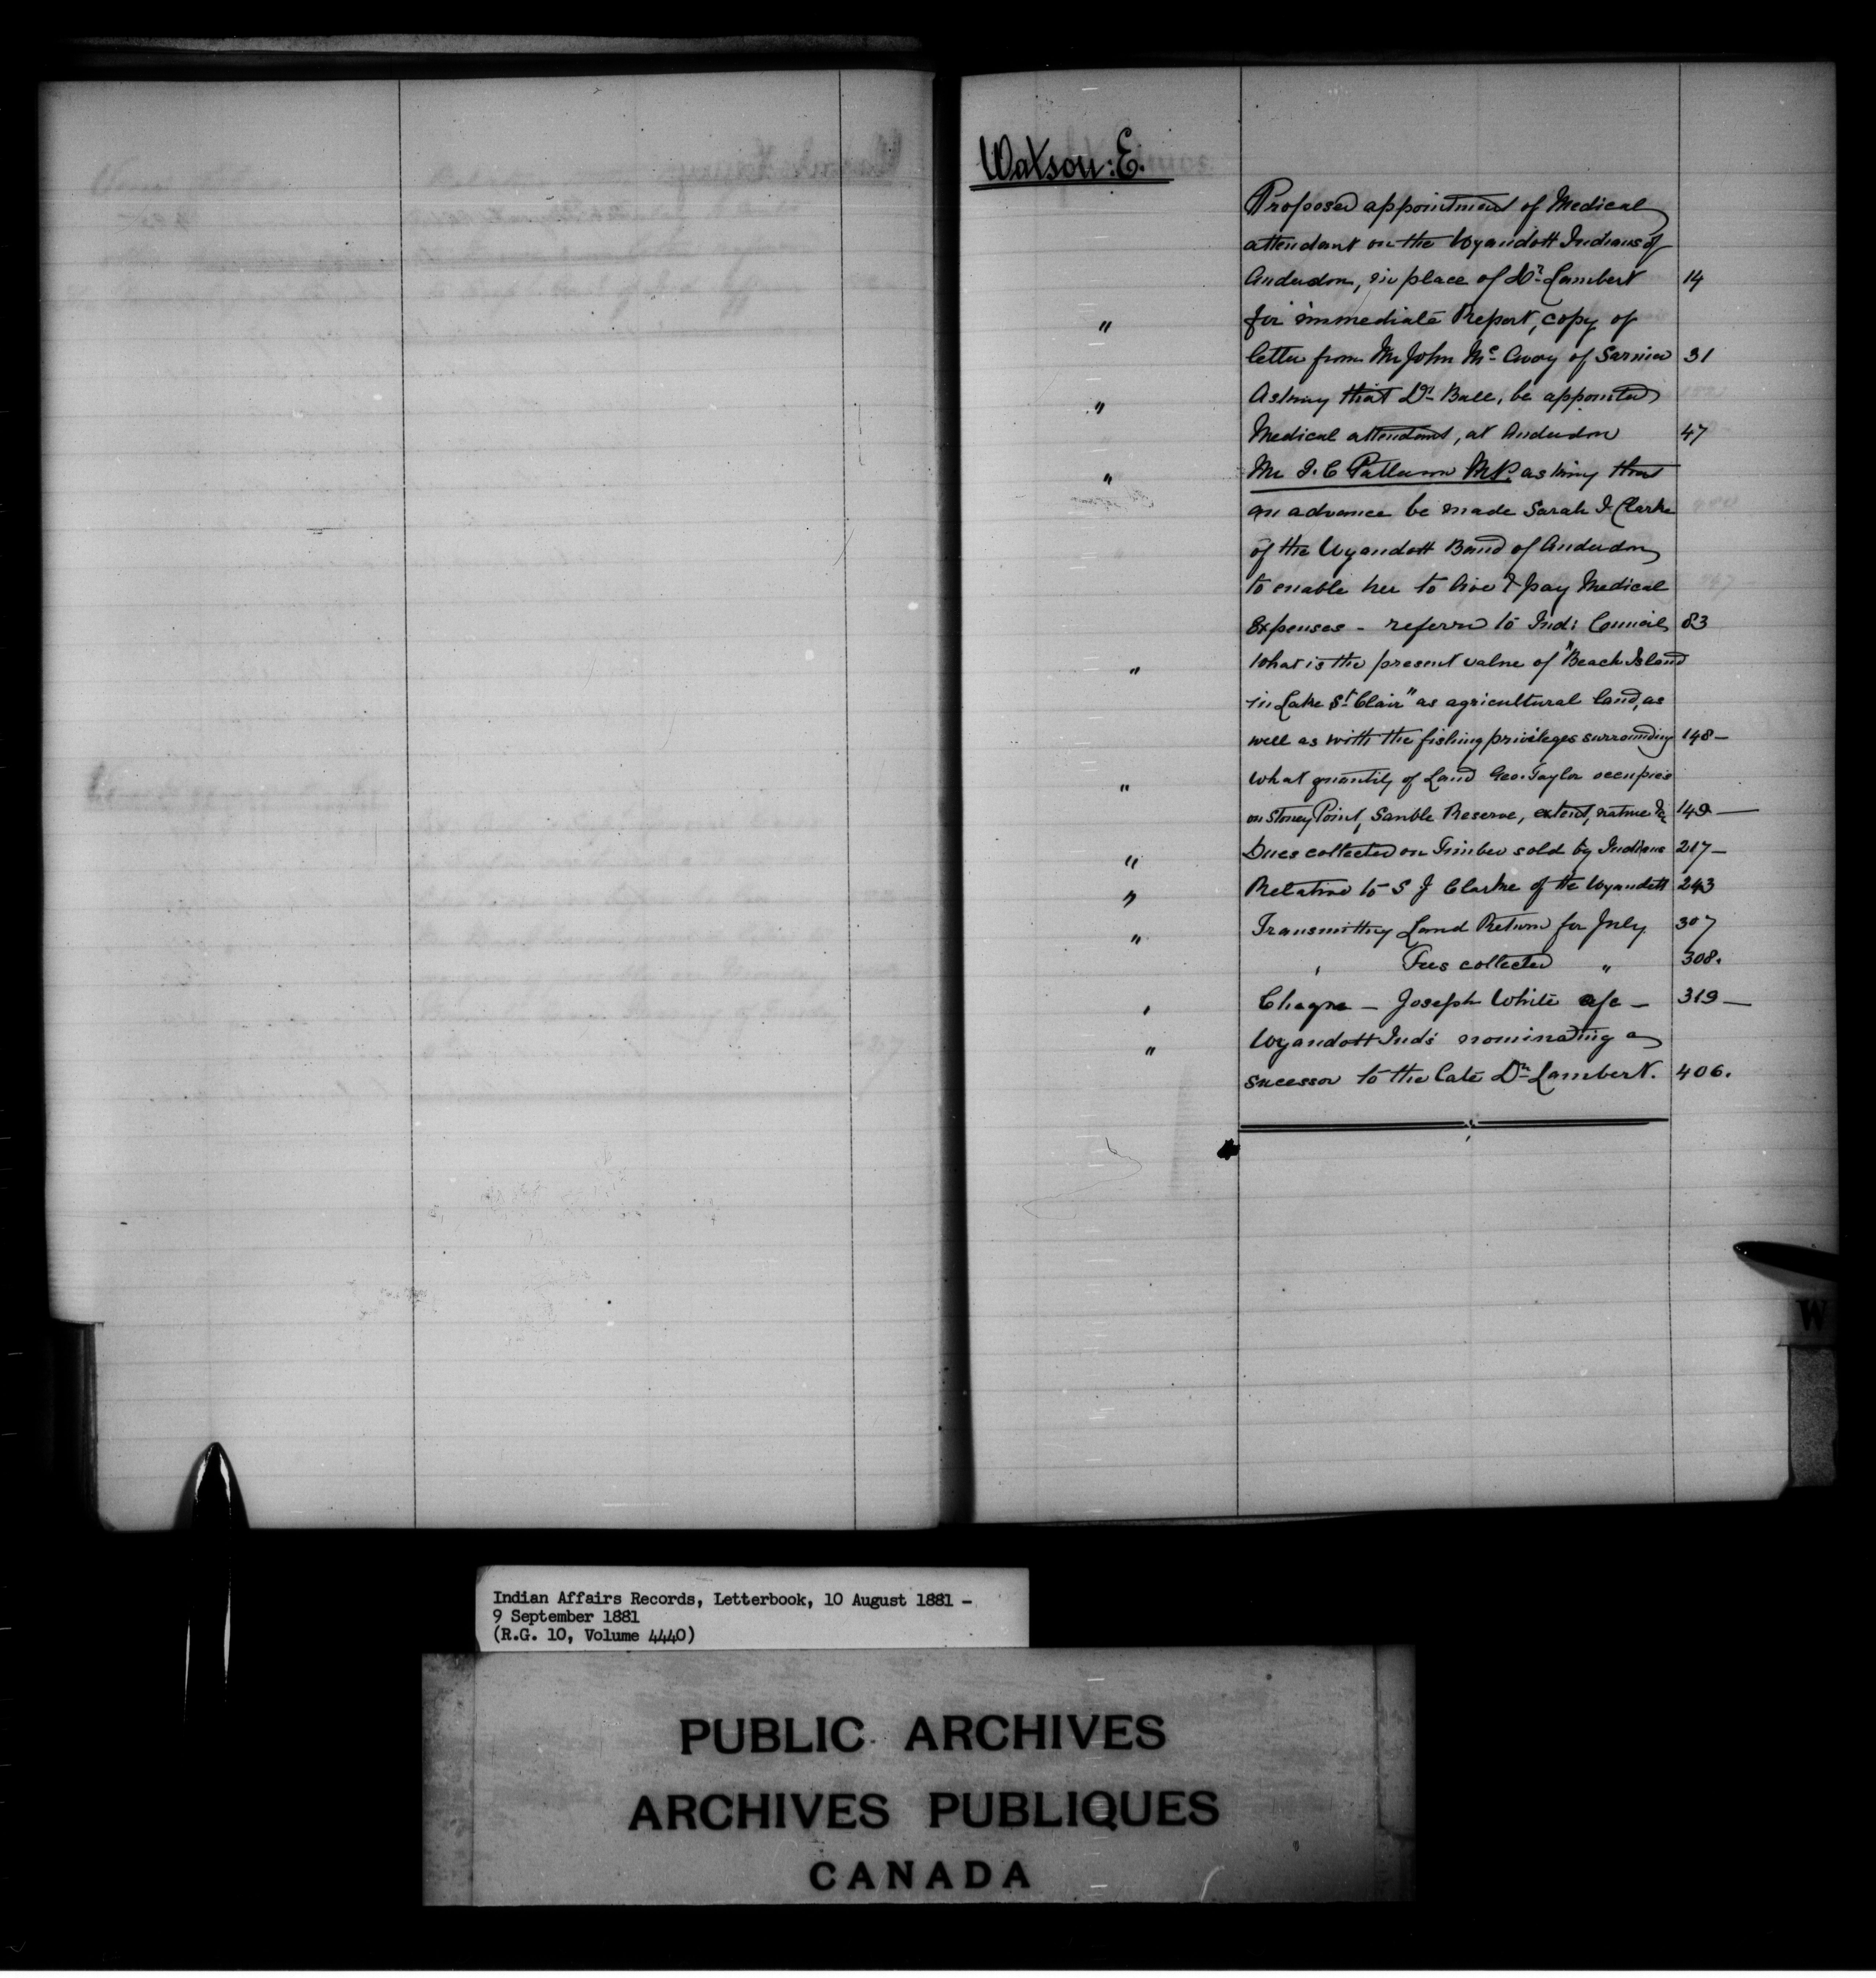 Watson: E.
Proposed appointment of Medical
attendant on the Wyandott Indians of
Anderdon, in place of Dr. Lambert 14
" for immediate Report, copy of
letter from Mr John Mc Avoy of Sarnia 31
" Asking that Dr Bell, be appointed
Medical attendant, at Anderdon 47
" Mr J. C Patterson M.P. asking that
an advance be made Sarah J. Clarke
of the Wyandott Band of Anderdon
to enable her to live & pay Medical
Expenses - referred to Ind: Council 83
" What is the present value of "Beach Island
in Lake St Clair" as agricultural land, as
well as with the fishing privileges surrounding 148 -
" What quantity of Land Geo. Taylor occupies
on Stoney Point, Sauble Reserve, extent, nature &c 149 -
" Dues collected on Timber sold by Indians 217 -
" Relative to S J Clarke of the Wyandott 243
" Transmitting Land Return for July 307
" Fees collected " 308.
" Cheque - Joseph White a/c - 319 -
" Wyandott Inds nominating a
sucessor to the late Dr Lambert. 406.
W
Indian Affairs Records, Letterbook, 10 August 1881 -
9 September 1881
(R.G. 10, Volume 4440)
PUBLIC ARCHIVES
ARCHIVES PUBLIQUES
CANADA